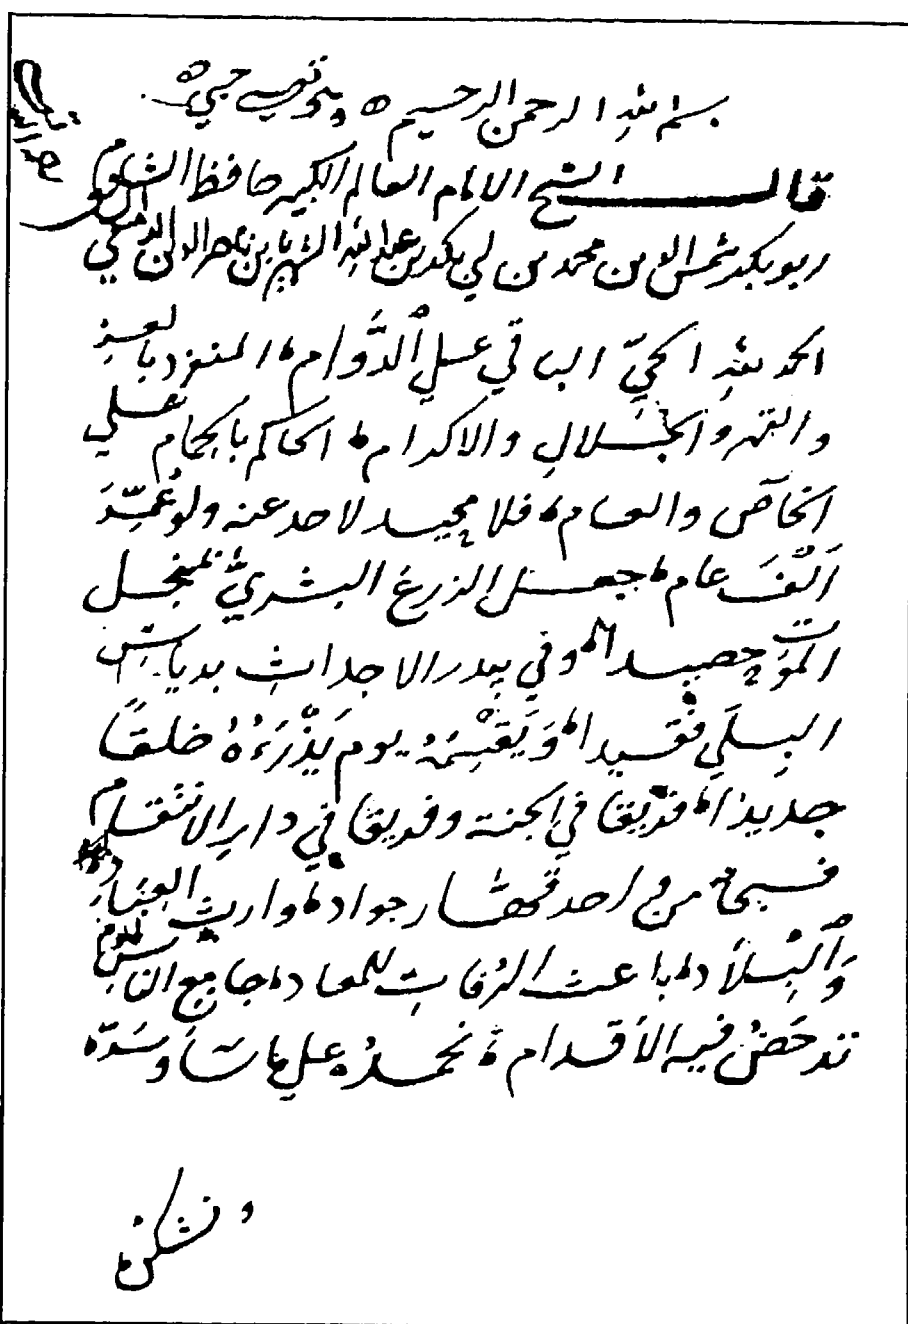 بسم الله الرحمن الرحيم ٥ وبه توفيقي حسبي ٥
قال الشيخ الامام العالم الكبير حافظ الشام
ابو بكر شمس الدين محمد بن ابي بكر عبد الله الشهير بابن ناصر الدين الدمشقي
الحمد لله الحيّ الباقي على الدَّوام المنفرد بالعز
والقهر والجَلالِ والاكرام الحاكم بالحِمام على
الخاصّ والعام فلا محيد لاحد عنه ولو عُمِّرَ
اَلْفَ عام جعل الزرع البشريّ بمنجل
الموتِ حصيدا وفي بيدر الاجداثِ بدياس
البِلَى فقيدا ويقسمه يوم يَذْرَءُهُ خلقًا
جديدا فريقا في الجنة وفريقا في دار الانتقام
فسبحانه من واحد قهار جواد وارث العباد
وَالْبِلاد باعث الرُفاتِ للمعاد جامع الناس ليوم
تدحَضُ فيه الأقدام نحمده على ما شاء وسَرّه
ونشكره